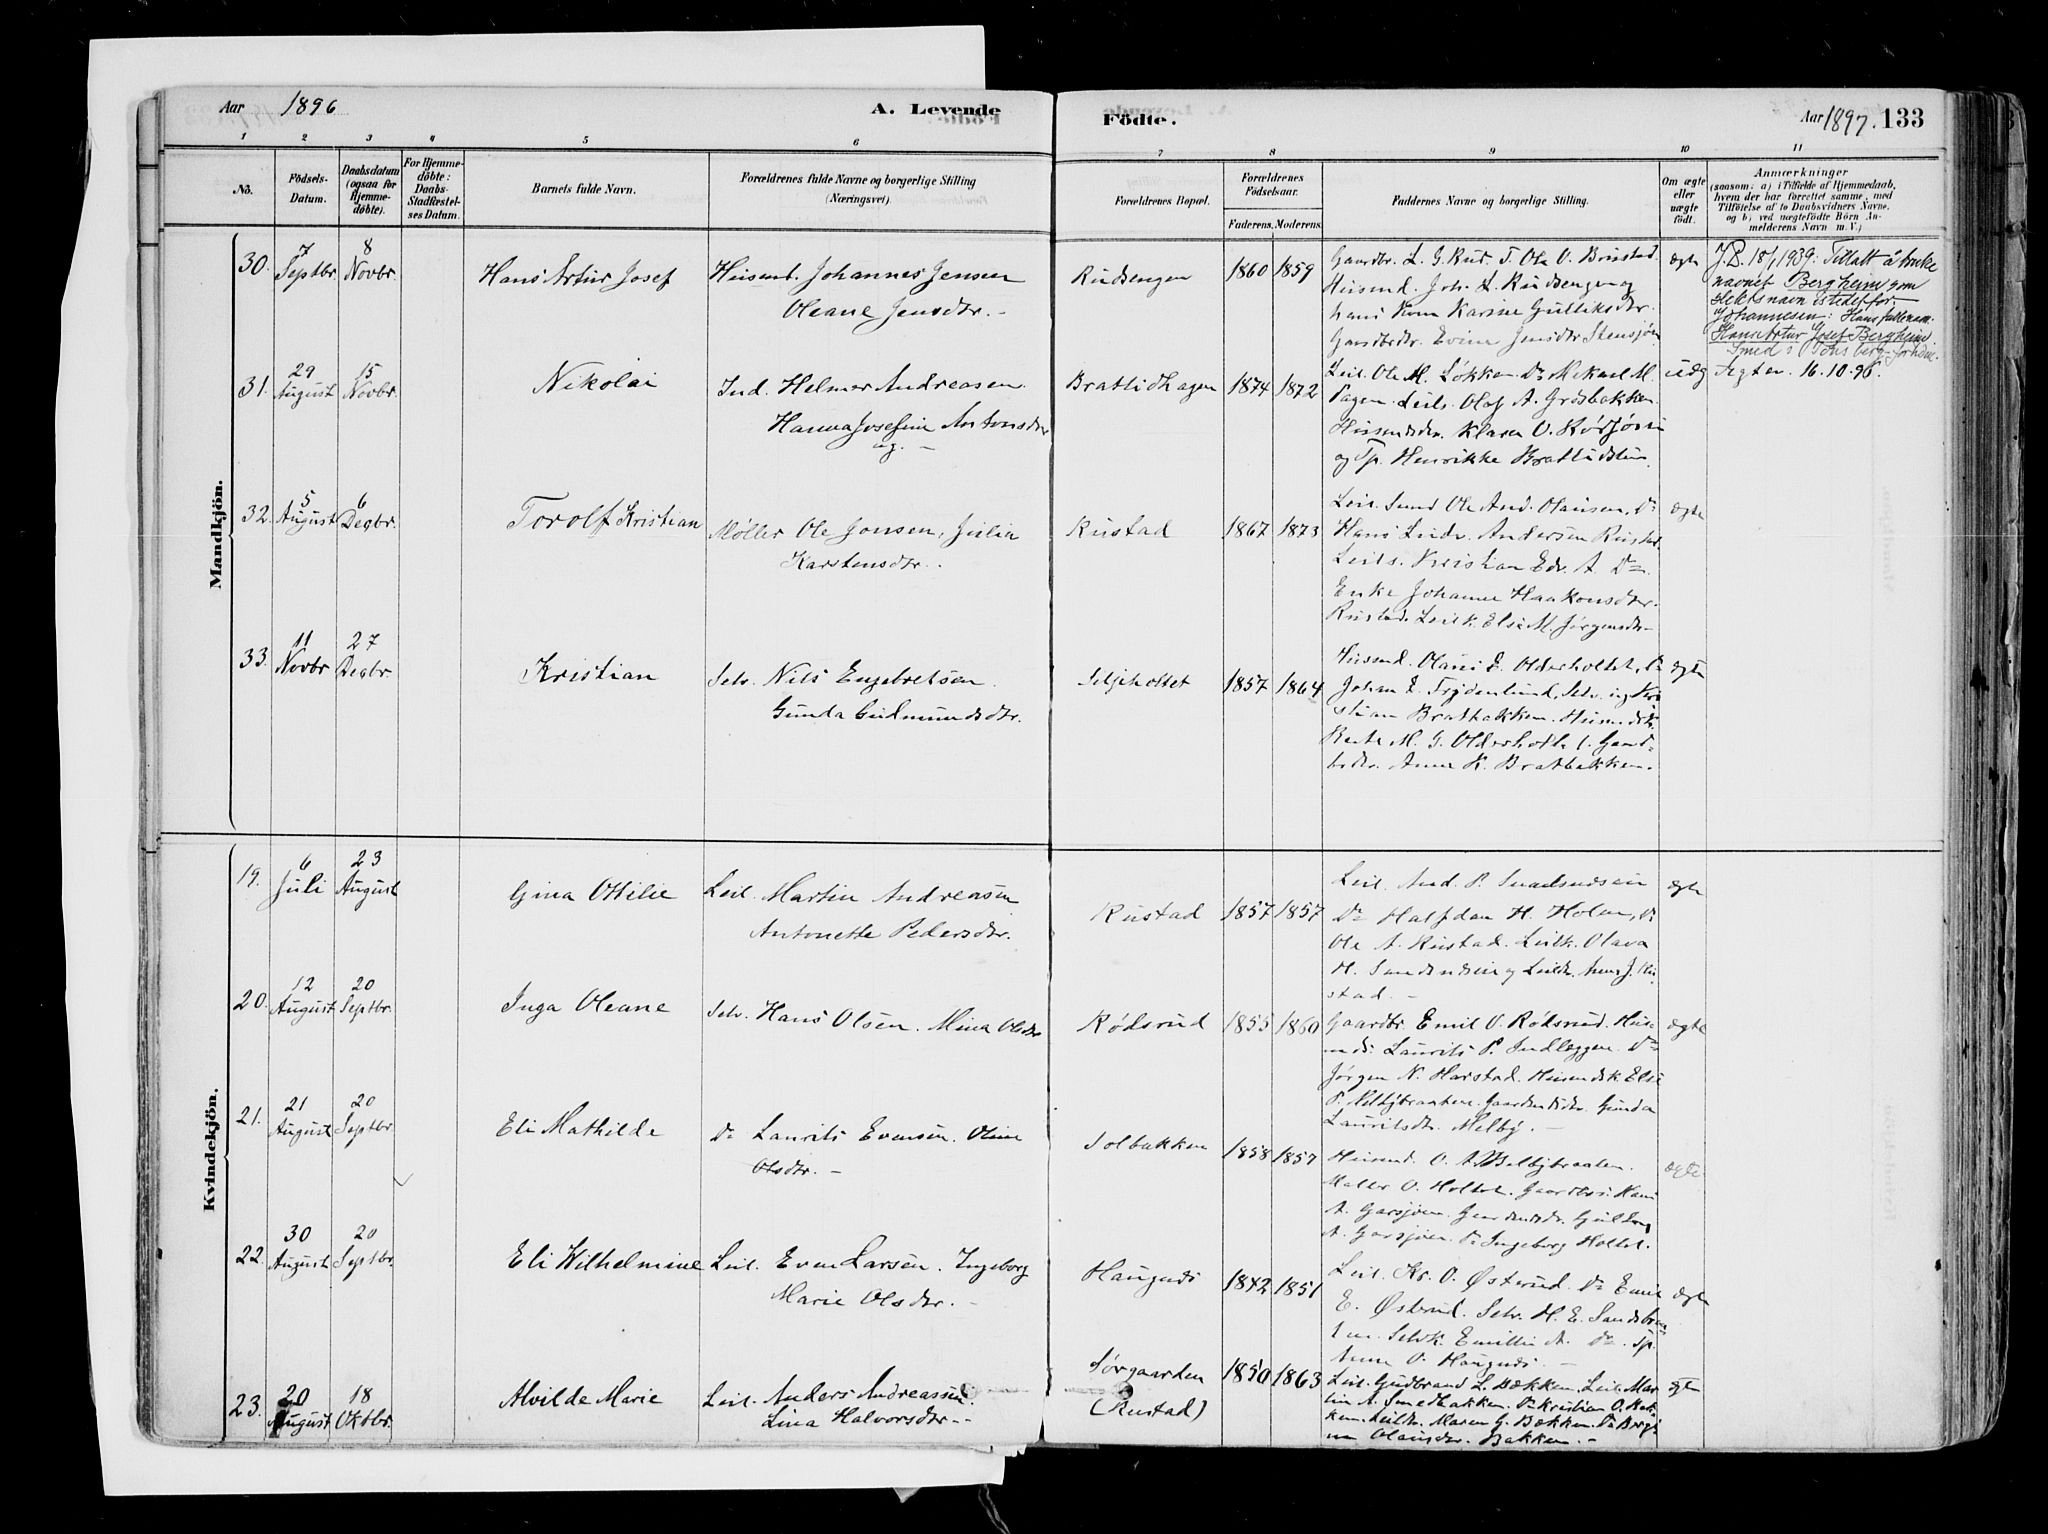 Aar 1896
A. Levende
Födte.
Aar 1897. 133
1 2 3 4 5 6 7 8 9 10 11
No.
Födsels-
Datum.
Daabsdatum
(ogsaa for
Hjemme-
döbte).
For Hjemme-
döbte:
Daabs-
Stadfæstel-
ses Datum.
Barnets fulde Navn.
Forældrenes fulde Navne og borgerlige Stilling
(Næringsvei).
Forældrenes Bopæl.
Forældrenes
Födselsaar.
Faderens. Moderens.
Faddernes Navne og borgerlige Stilling.
Om ægte
eller
uægte
födt.
Anmærkninger
(saasom: a) i Tilfælde af Hjemmedaab,
hvem der har forrettet samme, med
Tilföielse af to Daabsvidners Navne,
og b) ved uægtefödte Börn An-
melderens Navn m. V.)
Mandkjön.
30. 7 Septbr. 8 Novbr. Hans Artur Josef
Husmd. Johannes Jensen
Oleane Jensdtr.
Rudsengen 1860 1859
Gaardbr. L. G. Rud. T. Ole O. Brustad.
Husmd. Joh. L. Rudsengen og
hans Kone Karine Gulliksdtr.
Gaardbrdtr. Evine Jensdtr Stensjøen
ægte
J.D. 18/1 1939: Tillatt å bruke
navnet Bergheim som
slektsnavn istedetfor
Johannesen: Hans fulle navn:
Hans Artur Josef Bergheim.
31. 29 August 15 Novbr. Nikolai
Ind. Helmer Andreasen
Hanna Josefine Antonsdtr
ug.
Brattidhagen 1874 1872
Leil. Ole M. Løkken. Do Mikael M.
Hagen. Leils. Olaf A. Grøsbakken.
og Tp. Henrikke Brattid
uæg
Fegten. 16.10.96.
32. 5 August 6 Decbr. Torolf Kristian
Møller Ole Jonsen, Julia
Karstensdtr.
Rustad 1867 1873
Leil. Smed Ole And. Olausen, Do
Hans Ludv. Andersen Rustad.
Leils. Kristian Edv. A. Do
Enke Johanne Haakonsdtr.
Rustad. Leilk. Else M. Jörgensdtr.
ægte
33. 11 Novbr 27 Decbr. Kristian
Selv. Nils Engebretsen.
Gunda Gudmundsdtr.
Seljeholtet 1857 1864
Husmd. Olaus E. Olderholtet, Do
Johan E. Frydenlund, Selv. ug Kri
stian Bratbakken.
Anne K. Bratbakken.
ægte
Kvindekjön.
19. 6 Juli 23 August Gina Ottilie
Leil. Martin Andreasen
Antonette Pedersdtr.
Rustad 1857 1857
Leil. And. P.
Do Halfdan H. Holen, Do
Ole A. Rustad. Leilk. Olava
stad.
ægte
20. 12 August 20 Septbr. Inga Oleane
Selv. Hans Olsen. Mina Olsdtr
Rødsrud 1855 1860
Gaardbr. Emil O. Rødsrud. Hus-
md. Laurits P. Indlæggen. Do
Jørgen N. Harstad. Husmdsk. Else
P. Melbybraaten. Gaardmdsdtr. Gunda
Lauritsdtr. Melby.
ægte
21. 21 August 20 Septbr. Eli Mathilde
Do Laurits Evensen. Oline
Olsdtr.
Solbakken 1858 1857
Husmd. O. A. Melbybraaten.
A. Garsjøen. Do Ingeborg Holtet.
ægte
22. 30 August 20 Septbr. Eli Wilhelmine
Leil. Even Larsen. Ingeborg
Marie Olsdtr.
Haugnæs 1842 1851
Leil. Kr. O. Østerud. Do Emil
E. Østerud. Selv. H. E. Sandbraa
ten. Selvk. Emilie A. Do. Tp.
Anne O. Haugnæs.
ægte
23. 20 August 18 Oktbr. Alvilde Marie
Leil. Anders Andreassen.
Lina Halvorsdtr.
Sørgaarden
(Rustad)
1850 1863
Leil. Gudbrand L. Bækken. Leil. Mar
tin A. Smedbakken. Do Kristian O. Bak
ken. Leilk. Maren G. Bækken. Do Berg
Olausdtr. Bakken.
ægte